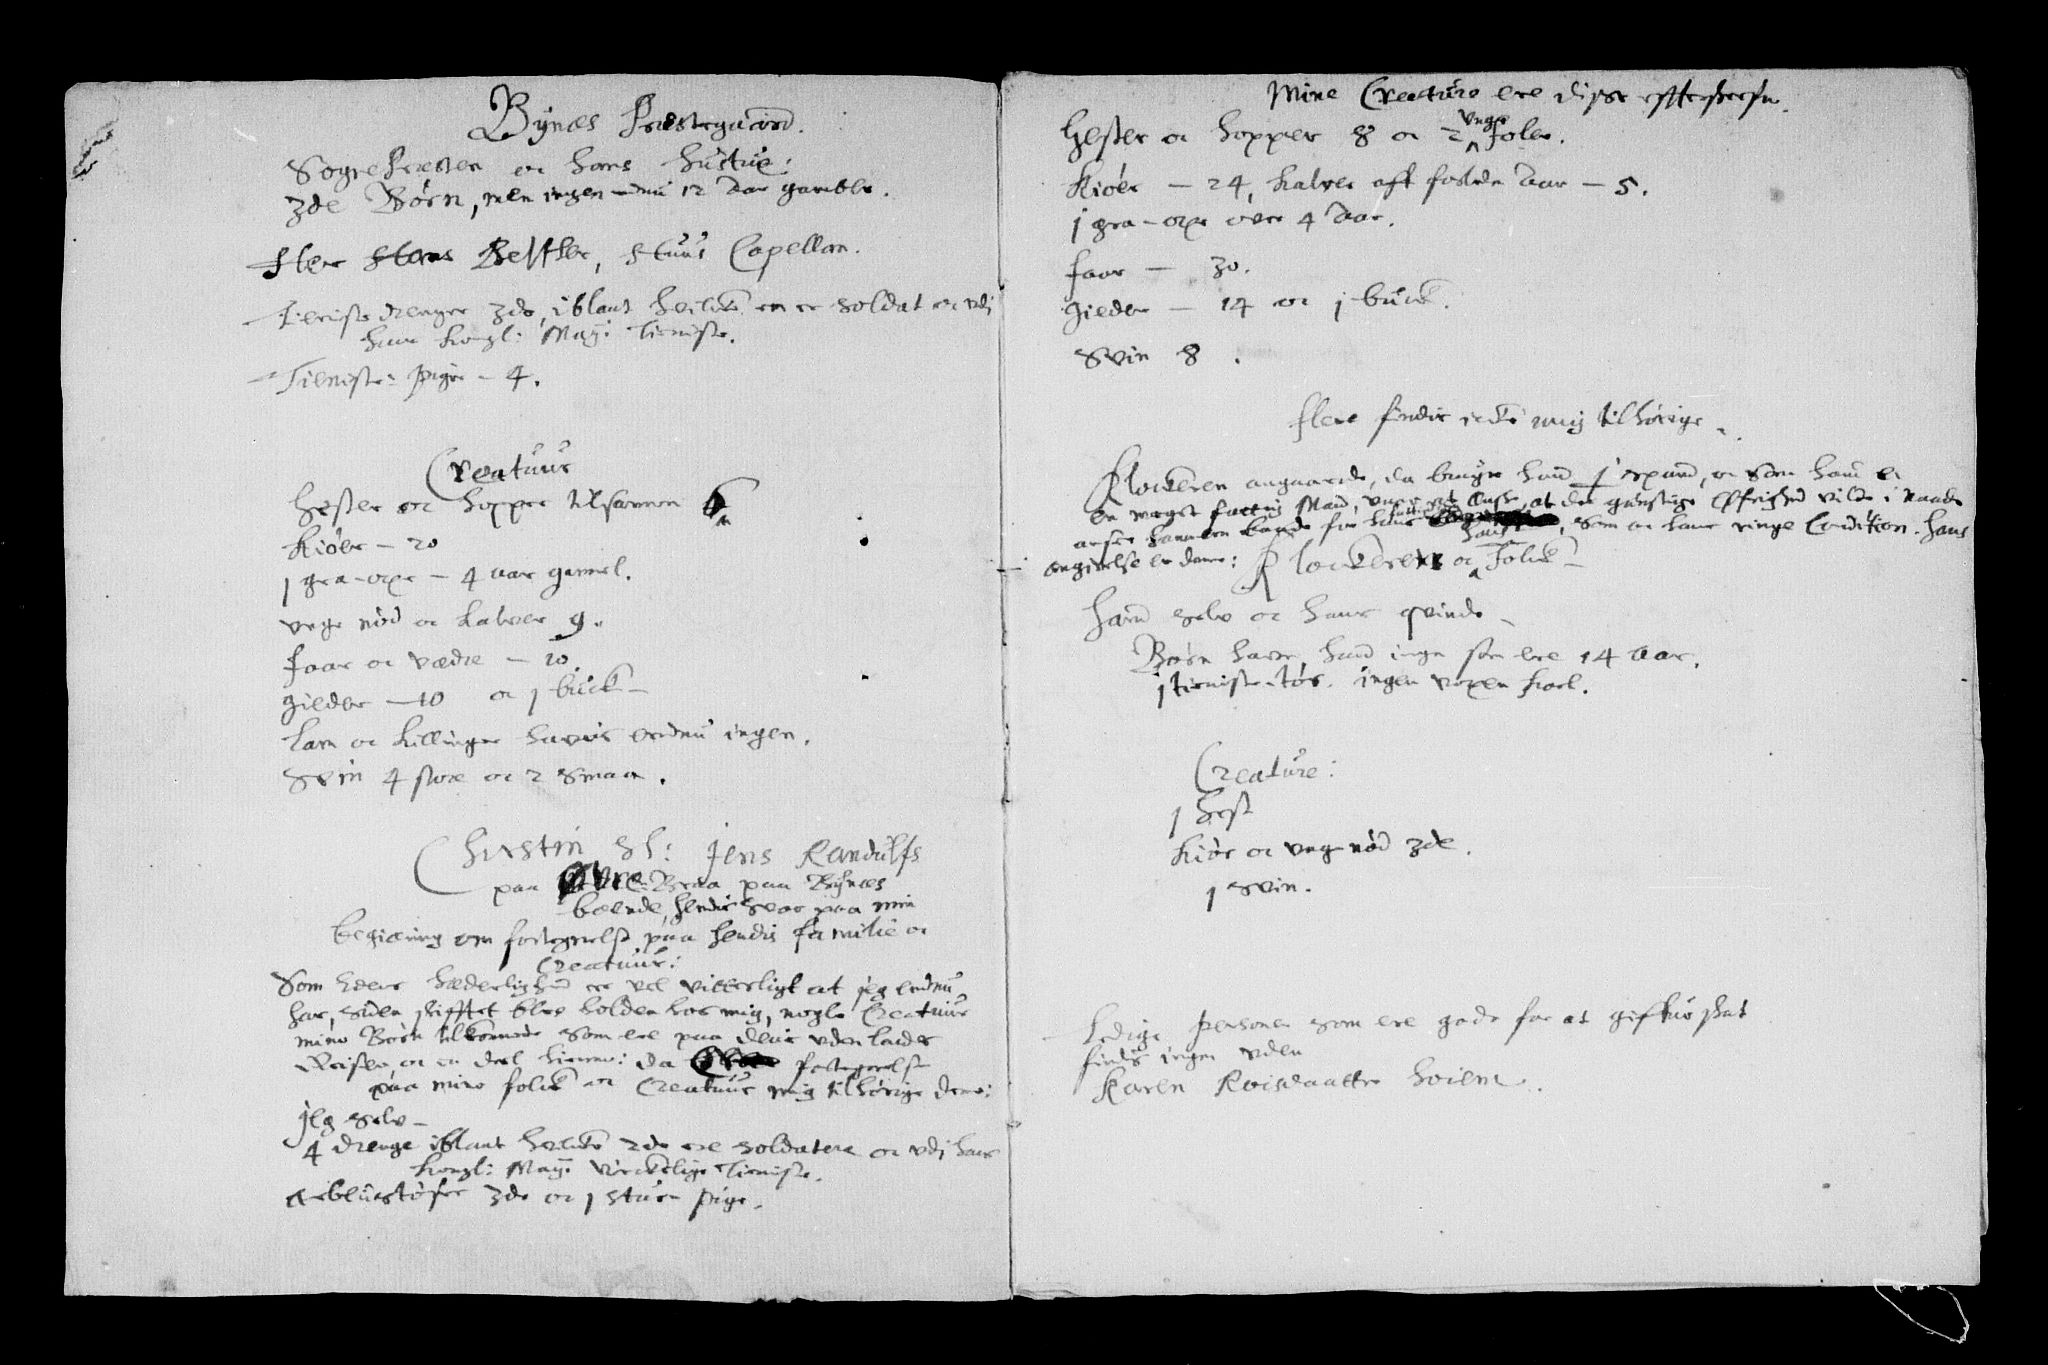 Bynæs Præstegaard.
Sogne Præsten oc hans hustrue.
3de Børn, men ingen endnu 12 Aar gamble.
Her Hans, Stuus Capellan.
Tieniste drenge 3de, iblant huilcke en er Soldat oc udj
hans Kongl: Mayj: Tieniste.
Tieniste: piger – 4.
Creatuur
Hester oc hopper tilsammen 6
Kiöer – 20
1 graa-oxe – 4 aar gammel.
unge nöd oc kalver 9.
faar oc vædre – 20.
gieder – 10 oc 1 buck –
Lam oc killinger havis endnu ingen.
Svin 4 store oc 2 Smaa.
Christin Sl: Jens Randulfs
paa Braa paa Bynæs
boende, hendis Svar paa min
begiæring om fortegnelse paa hendis familie oc
Creatuur:
Som eders hæderlighed er vel vitterligt at jeg endnu
har, siden skifftet blev holden hos mig, nogle Creatuur
mine Börn tilkommende som ere paa deris uden landz
Reiser, oc en deel hiemme: da fortegnelse
paa mine folck oc Creatuur mig tilhörige denne:
Jeg selv –
4 drenge iblant huilcke 2de ere soldatere oc udj hans
Kongl: Mayj: virckelige Tieniste.
Arbeidstöser 3de oc 1 stue pige.
Mine Creature ere disse effterskrefne.
Hester oc hopper 8 oc 2 unge foler.
Kiöer – 24, kalver aff forleden Aar – 5.
1 graa-oxe over 4 Aar.
faar – 30.
gieder – 14 oc 1 buck.
Svin 8.
flere findis icke mig tilhörige.
Klockeren angaaende, da bruger hand 1 spand, oc Som hand er
en meget fattig Mand, at den gunstige Öfrighed vilde i Naade
ansee hannem for hans, Som oc hans ringe Condition. Hans
angivelse er denne: Klockeren oc hans Folck –
Hand selv oc hans qvinde –
Börn haver hand ingen som ere 14 aar.
1 tieniste-tös. ingen voxen karl.
Creature:
1 Hest
Kiör oc unge nöd 3de.
1 Svin.
Ledige personer Som ere gode for at giffue skat
findis ingen uden
Karen Roisdaatter Hoiem.